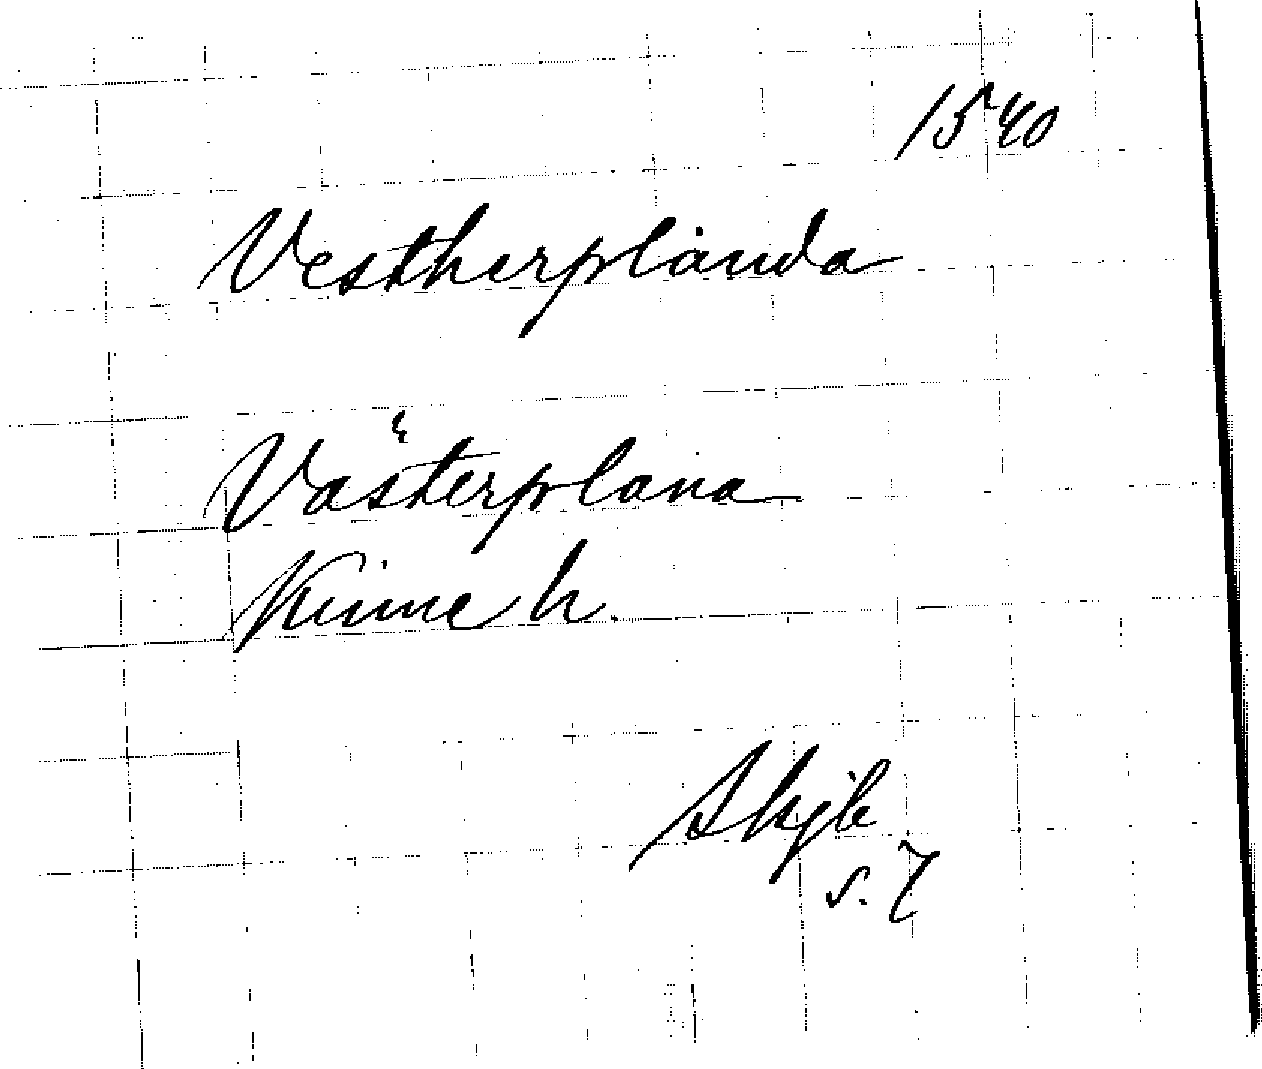 1540
Vestherplånda
Västerplana
Kinne h.
Skjb
s. 7